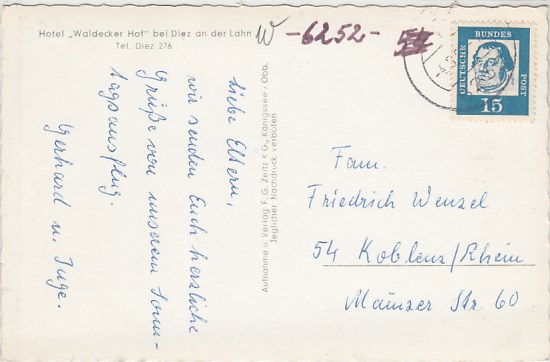 Hotel „Waldecker Hof" bei Diez an der Lahn
Tel. Diez 276
W -6252- 54
DEUTSCHE BUNDESPOST
15
Liebe Eltern,
wir senden Euch herzliche
Grüße von unserem Sonn-
tagsausflug.
Gerhard u. Inge.
Aufnahme u. Verlag F. G. Zeitz K G., Königssee / Obb.
Jeglicher Nachdruck verboten
Fam.
Friedrich Wenzel
54 Koblenz/Rhein
Mainzer Str. 60